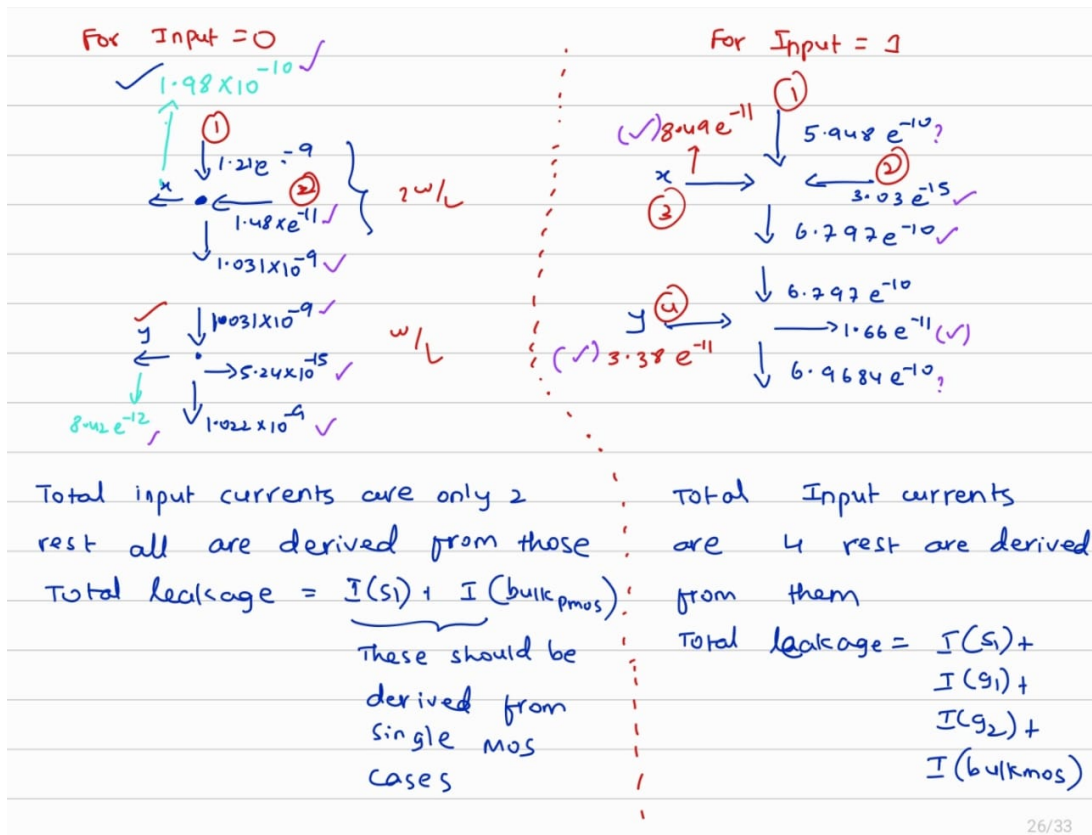 For Input = 0
✓ 1.98 X 10^-10 ✓
①
1.21e^-9
x
②
1.48xe^-11 ✓
2w/L
1.031x10^-9 ✓
1.031x10^-9 ✓
w/L
y
→5.24x10^-15 ✓
8.42e^-12 ✓
1.022 x 10^-9 ✓
Total input currents are only 2
rest all are derived from those
Total leakage = I(s1) + I(bulk pmos)
These should be
derived from
single MOS
cases
For Input = 1
①
(✓) 8.49e^-11
5.948 e^-10 ?
x
②
3.03 e^-15 ✓
③
6.797e^-10 ✓
6.797 e^-10
y ④
→1.66 e^-11 (✓)
(✓) 3.38 e^-11
6.9684e^-10 ?
Total Input currents
are 4 rest are derived
from them
Total leakage = I(s1) +
I(g1) +
I(g2) +
I(bulkmos)
26/33